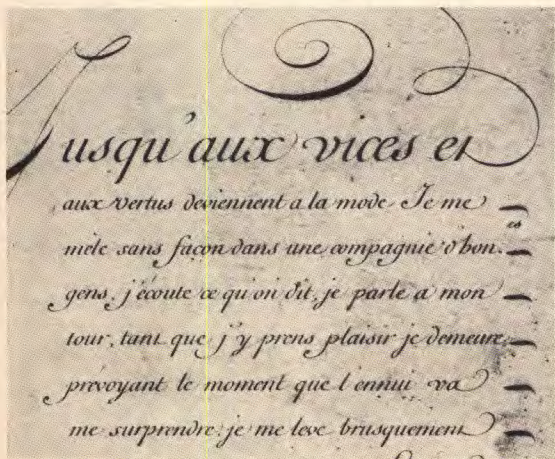 Jusqu'aux vices et
aux vertus deviennent a la mode Je me
mêle sans façon dans une compagnie d'bon.es
gens, j'écoute ce qu'on dit, je parle a mon
tour, tant que j'y prens plaisir je demeure,
prévoyant le moment que l'ennui va
me surprendre, je me leve brusquement